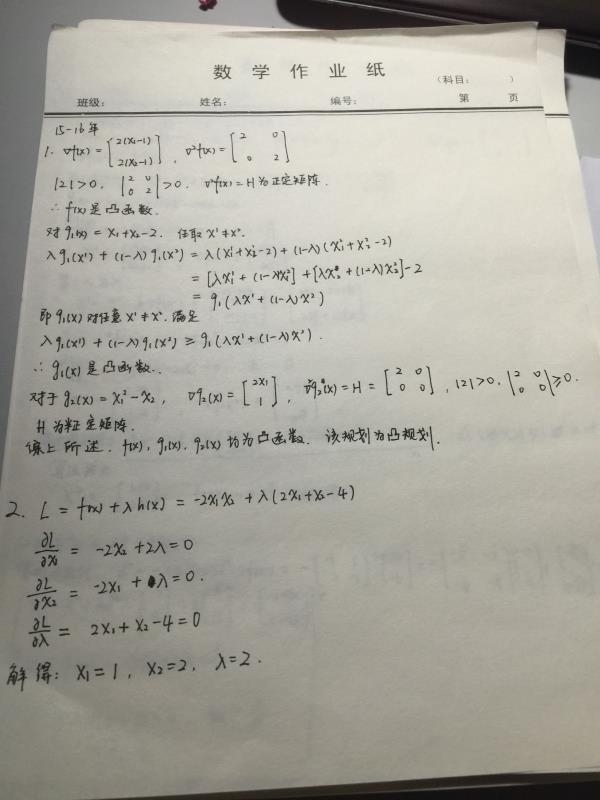 数 学 作 业 纸
（科目： ）
班级： 姓名： 编号： 第 页
15-16年
1. ∇f(x) = [2(x₁-1) 2(x₂-1)] , ∇²f(x) = [2 0 0 2]
|2|>0, |2 0 0 2|>0. ∇²f(x)=H 为正定矩阵.
∴ f(x)是凸函数.
对 g₁(x) = x₁+x₂-2. 任取 x¹≠x².
λg₁(x¹) + (1-λ)g₁(x²) = λ(x₁¹+x₂¹-2) + (1-λ)(x₁²+x₂²-2)
= [λx₁¹ + (1-λ)x₁²] + [λx₂¹ + (1-λ)x₂²] -2
= g₁(λx¹ + (1-λ)x²)
即 g₁(x) 对任意 x¹≠x². 满足
λg₁(x¹) + (1-λ)g₁(x²) ≥ g₁(λx¹ + (1-λ)x²).
∴ g₁(x)是凸函数.
对于 g₂(x) = x₁²-x₂, ∇g₂(x) = [2x₁ 1] , ∇²g₂(x) = H = [2 0 0 0] , |2|>0, |2 0 0 0|≥0.
H 为半正定矩阵.
综上所述, f(x), g₁(x), g₂(x) 均为凸函数. 该规划为凸规划.
2. L = f(x) + λh(x) = -2x₁x₂ + λ(2x₁+x₂-4)
∂L/∂x₁ = -2x₂ + 2λ = 0
∂L/∂x₂ = -2x₁ + λ = 0.
∂L/∂λ = 2x₁ + x₂ - 4 = 0
解得: x₁=1, x₂=2, λ=2.